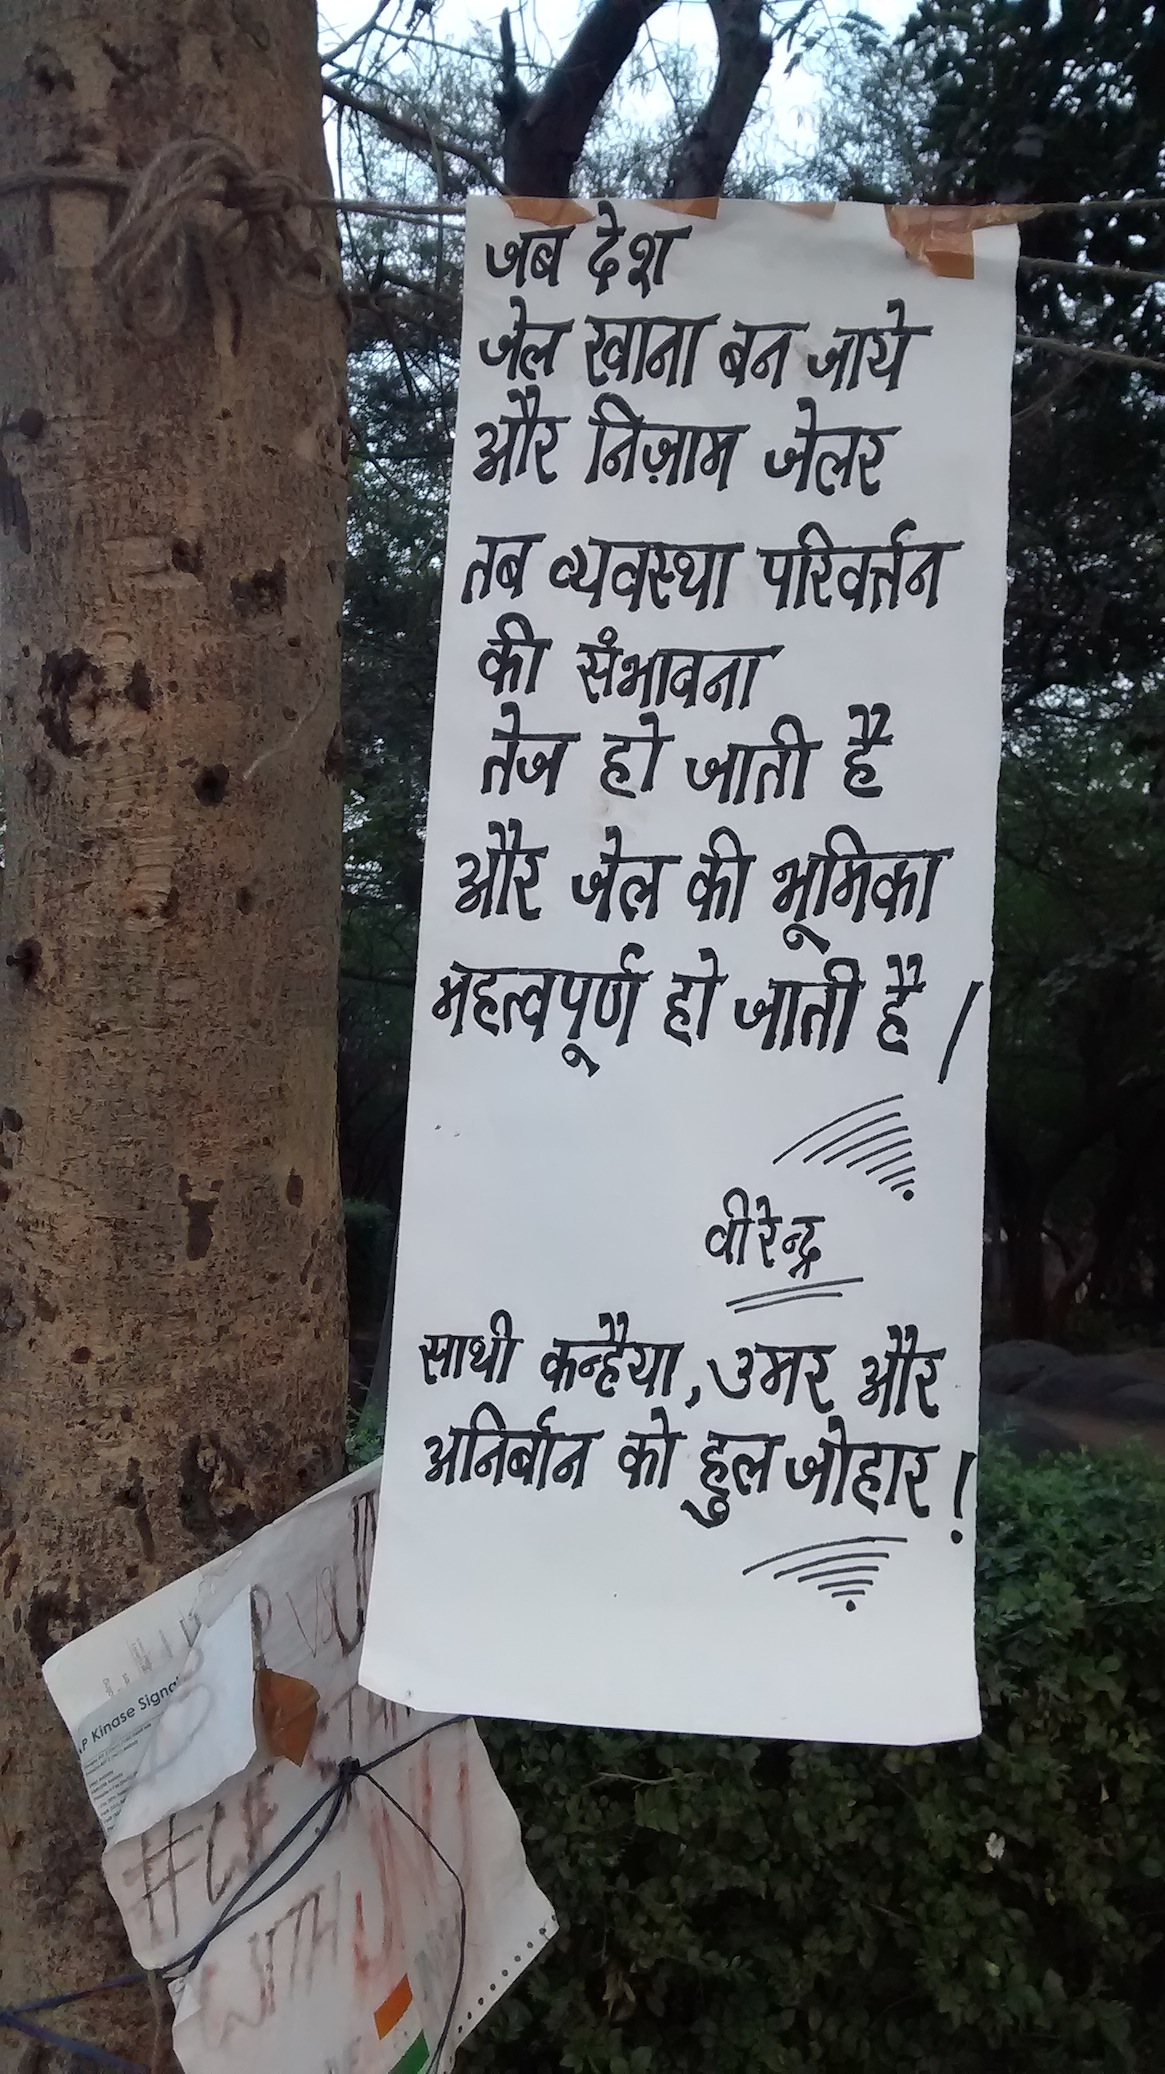 जब देश
जेल खाना बन जाये
और निज़ाम जेलर
तब व्यवस्था परिवर्त्तन
की संभावना
तेज हो जाती है
और जेल की भूमिका
महत्वपूर्ण हो जाती है /
वीरेन्द्र
साथी कन्हैया, उमर और
अनिर्बान को हुल जोहार !
Kinase Signa
WITH JNU